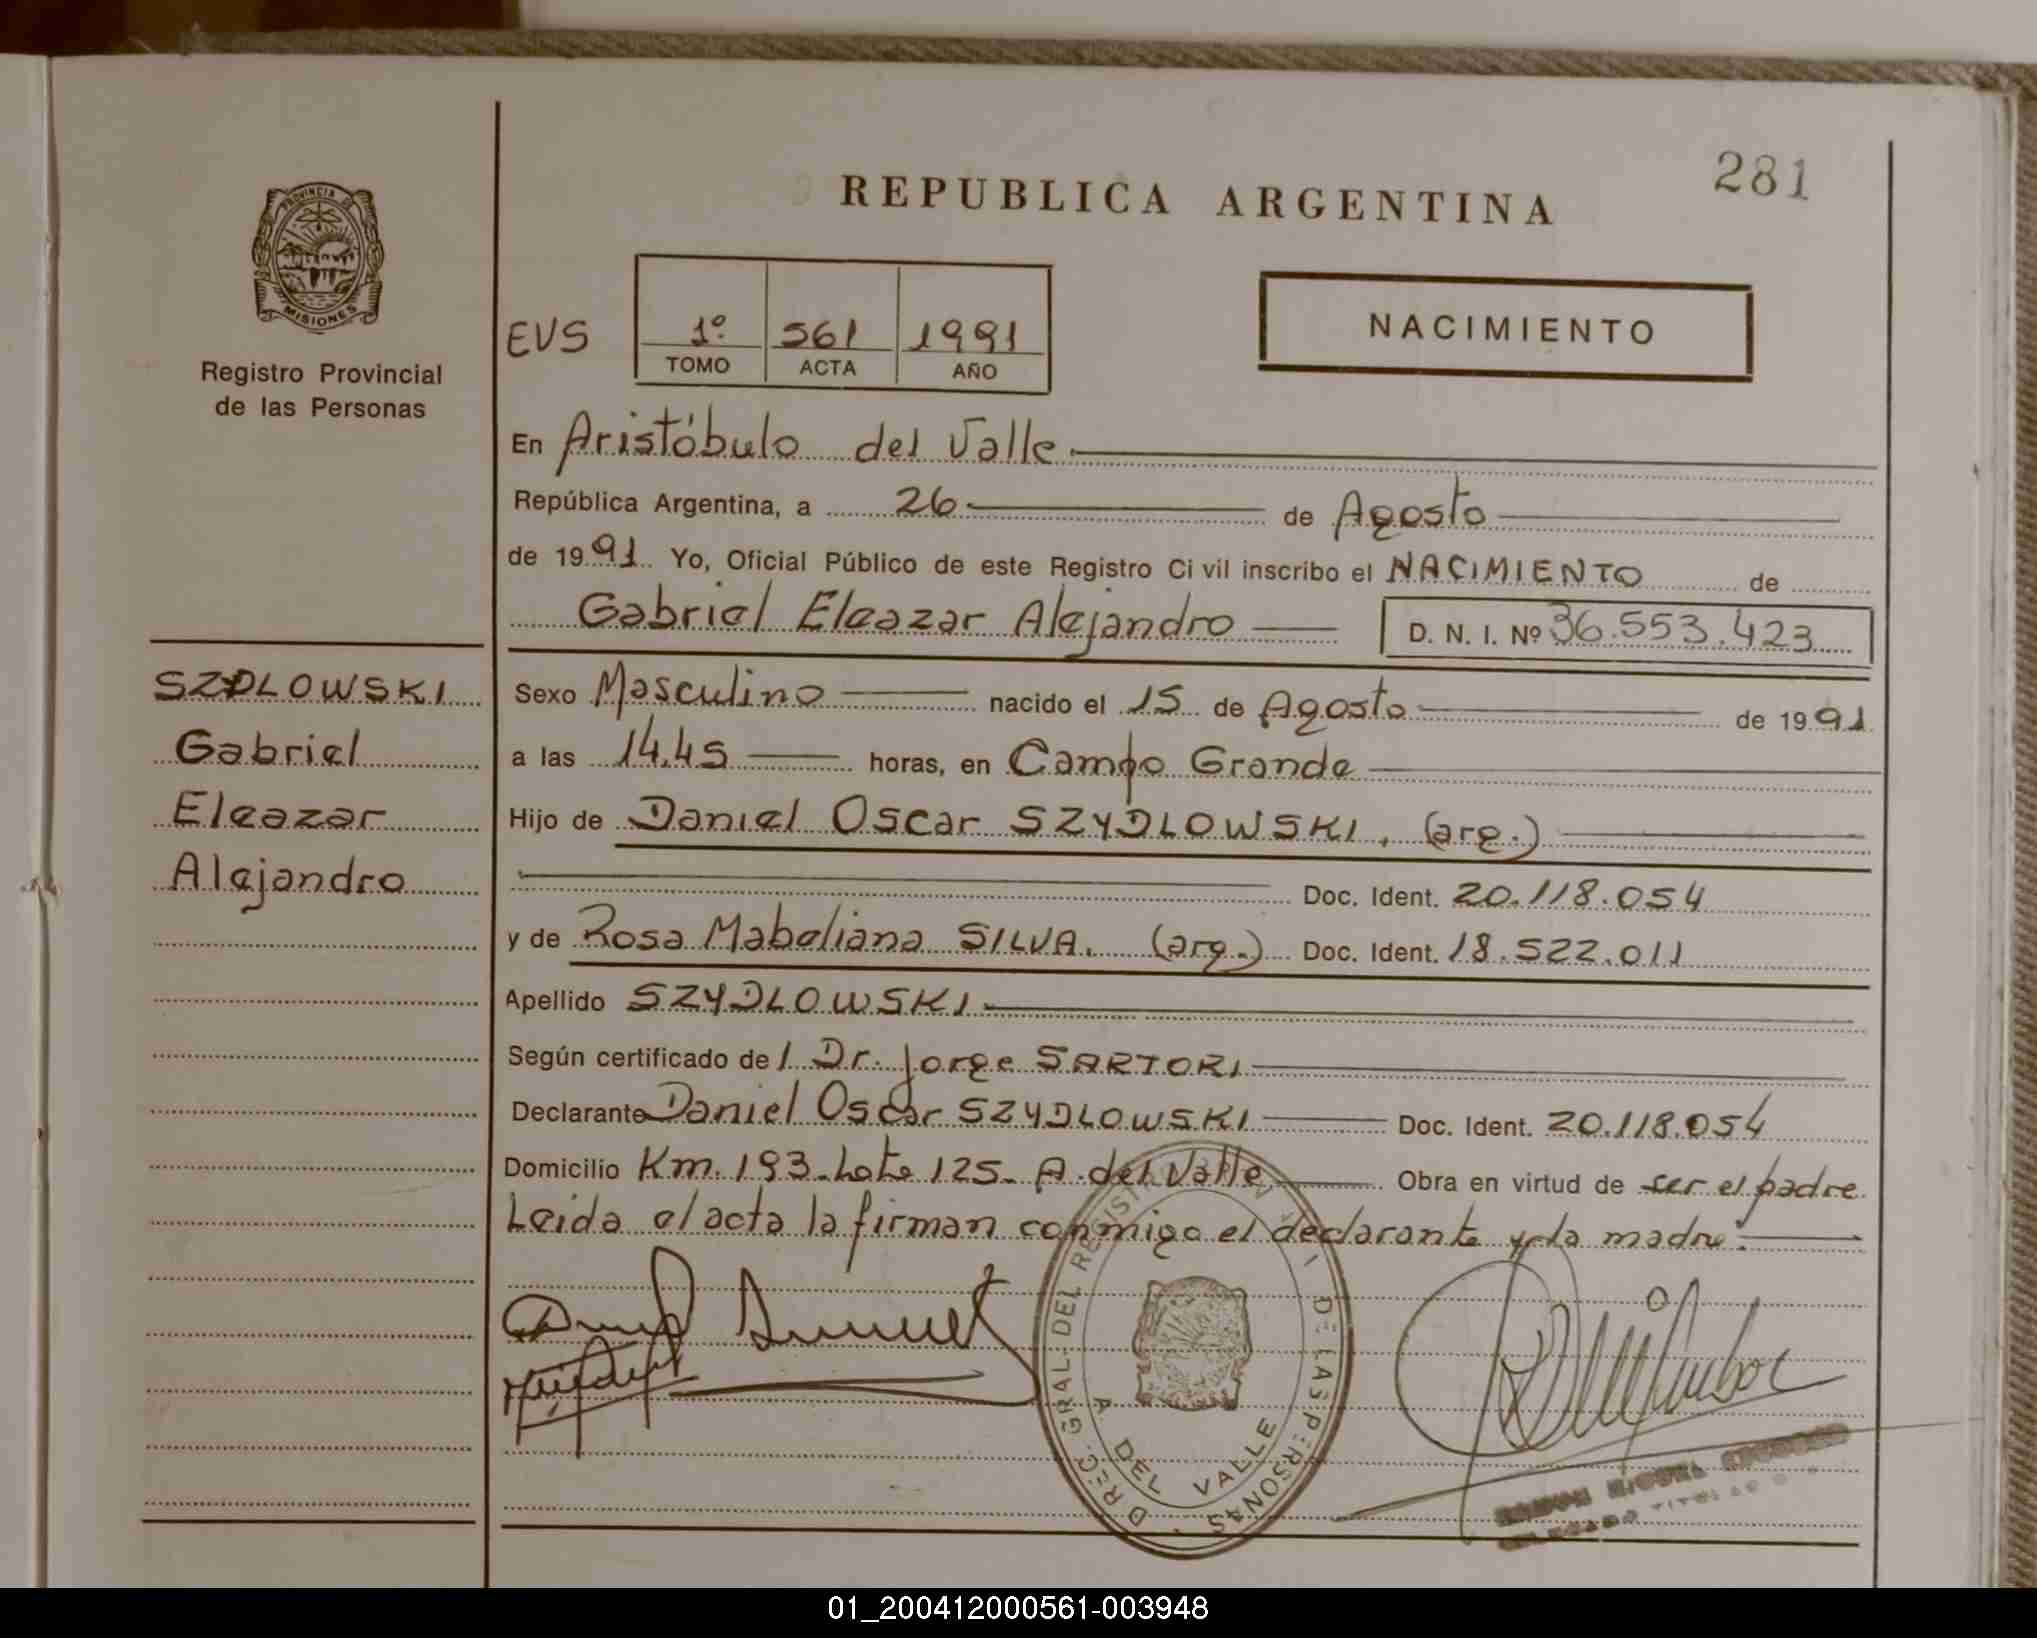 281
REPUBLICA ARGENTINA
PROVINCIA DE
MISIONES
Registro Provincial
de las Personas
EVS
1º 561 1991
TOMO ACTA AÑO
NACIMIENTO
En Aristóbulo del Valle
República Argentina, a 26 de Agosto
de 1991 Yo, Oficial Público de este Registro Ci vil inscribo el NACIMIENTO de
Gabriel Eleazar Alejandro D. N. I. Nº 36.553.423
SZDLOWSKI
Gabriel
Eleazar
Alejandro
Sexo Masculino nacido el 15 de Agosto de 1991
a las 14.45 horas, en Campo Grande
Hijo de Daniel Oscar SZYDLOWSKI, (arg.)
Doc. Ident. 20.118.054
y de Rosa Mabeliana SILVA. (arg.) Doc. Ident. 18.522.011
Apellido SZYDLOWSKI
Según certificado de l Dr. Jorge SARTORI
Declarante Daniel Oscar SZYDLOWSKI Doc. Ident. 20.118.054
Domicilio Km. 193. Lote 125. A. del Valle Obra en virtud de ser el padre
Leida el acta la firman conmigo el declarante y la madre.
DIREC. GRAL. DEL DE LAS PERSONAS
A. DEL VALLE
01_200412000561-003948